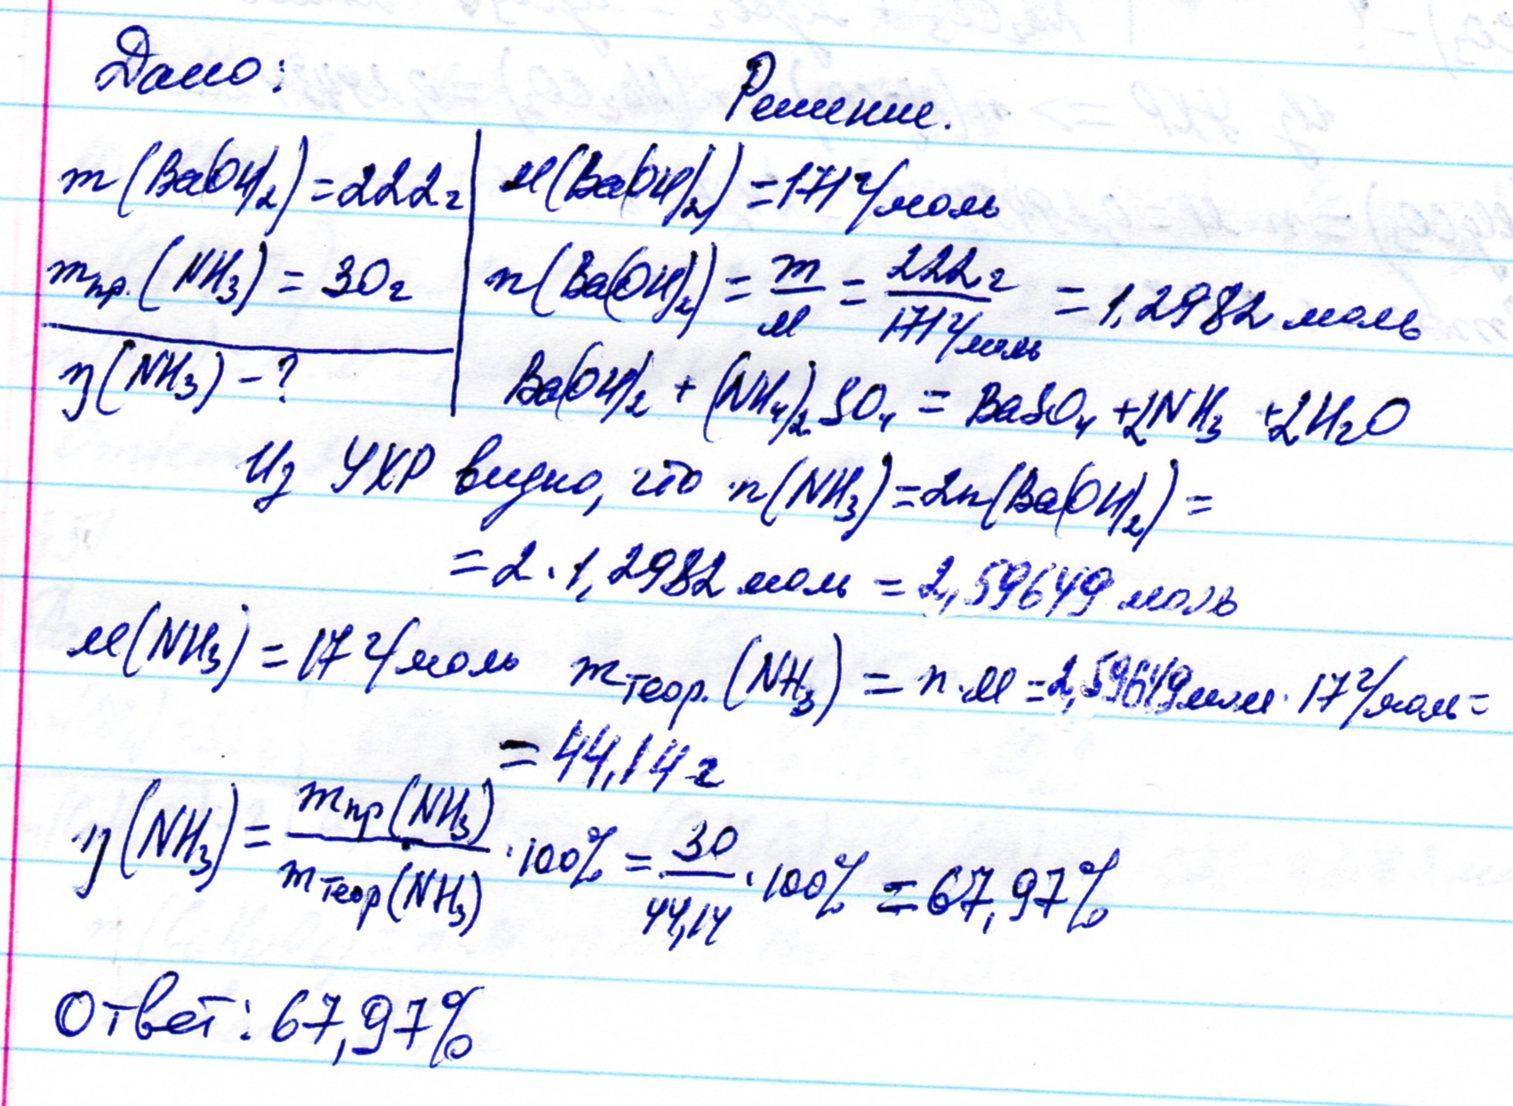 Дано:
Решение.
m(Ba(OH)₂) = 222г
M(Ba(OH)₂) = 171 г/моль
mпр.(NH₃) = 30г
n(Ba(OH)₂) = m/M = 222г/171 г/моль = 1,2982 моль
η(NH₃) - ?
Ba(OH)₂ + (NH₄)₂SO₄ = BaSO₄ + 2NH₃ + 2H₂O
Из УХР видно, что n(NH₃) = 2n(Ba(OH)₂) =
= 2 · 1,2982 моль = 2,59649 моль
M(NH₃) = 17 г/моль mтеор.(NH₃) = n·M = 2,59649 моль · 17 г/моль =
= 44,14 г
η(NH₃) = mпр(NH₃)/mтеор(NH₃) · 100% = 30/44,14 · 100% = 67,97%
Ответ: 67,97%